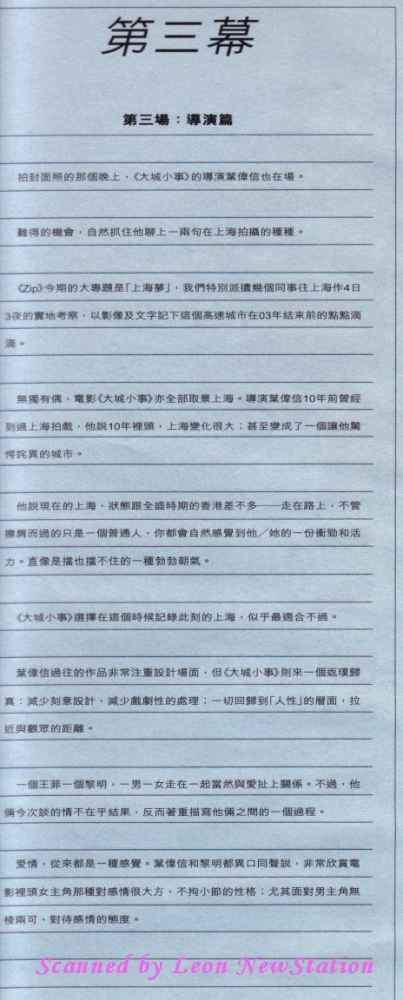 第三幕
第三場：導演篇
拍封面照的那個晚上，《大城小事》的導演葉偉信也在場。
難得的機會，自然抓住他聊上一兩句在上海拍攝的種種。
《Zip》今期的大專題是「上海夢」，我們特別派遣幾個同事往上海作4日
3夜的實地考察，以影像及文字記下這個高速城市在03年結束前的點點滴
滴。
無獨有偶，電影《大城小事》亦全部取景上海。導演葉偉信10年前曾經
到過上海拍戲，他說10年裡頭，上海變化很大；甚至變成了一個讓他驚
愕詫異的城市。
他說現在的上海，狀態跟全盛時期的香港差不多──走在路上，不管
擦肩而過的只是一個普通人，你都會自然感覺到他／她的一份衝勁和活
力。直像是擋也擋不住的一種勃勃朝氣。
《大城小事》選擇在這個時候記錄此刻的上海，似乎最適合不過。
葉偉信過往的作品非常注重設計場面，但《大城小事》則來一個返璞歸
真：減少刻意設計，減少戲劇性的處理；一切回歸到「人性」的層面，拉
近與觀眾的距離。
一個王菲一個黎明，一男一女走在一起當然與愛扯上關係。不過，他
倆今次談的情不在乎結果，反而著重描寫他倆之間的一個過程。
愛情，從來都是一種感覺。葉偉信和黎明都異口同聲說，非常欣賞電
影裡頭女主角那種對感情很大方，不拘小節的性格；尤其面對男主角無
棱兩可，對待感情的態度。
Scanned by Leon NewStation